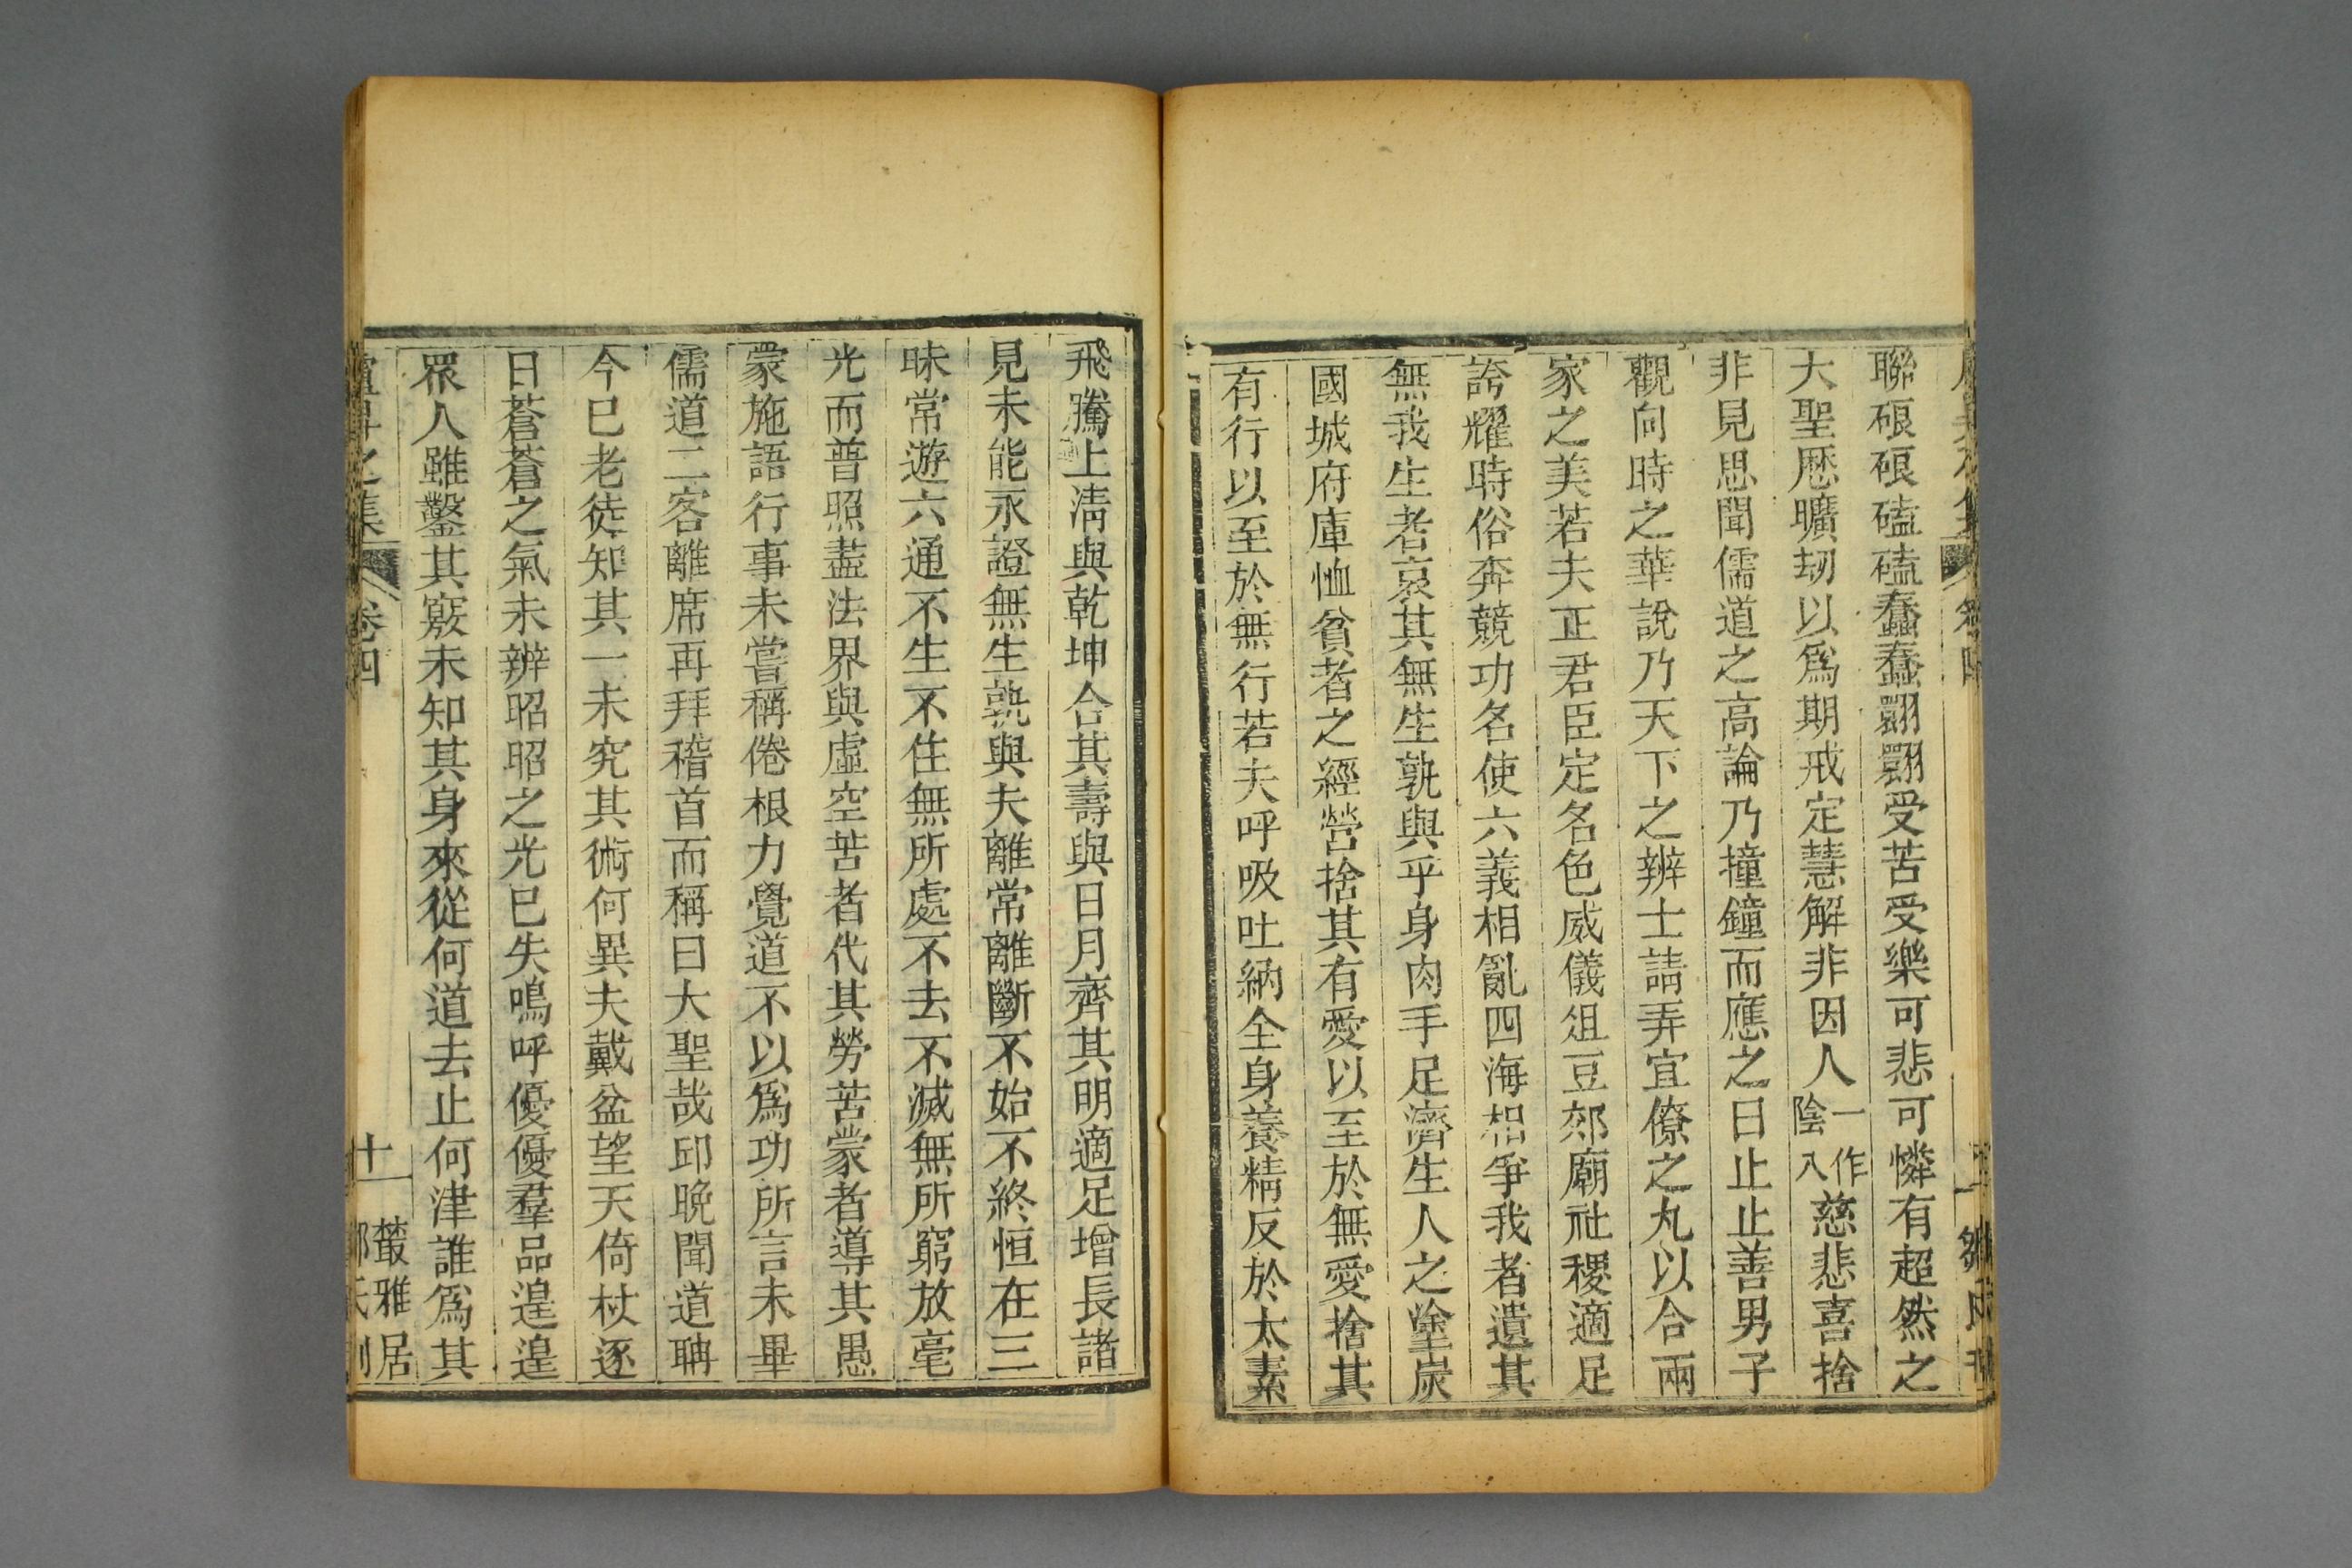 聯硠硠磕磕蠢蠢翾翾受苦受樂可悲可憐有超然之
大聖歷曠刼以爲期戒定慧解非因人一作陰入慈悲喜捨
非見思聞儒道之高論乃撞鐘而應之曰止止善男子
觀向時之華說乃天下之辨士請弄宜僚之丸以合兩
家之美若夫正君臣定名色威儀俎豆郊廟社稷適足
誇耀時俗奔競功名使六義相亂四海相爭我者遺其
無我生者哀其無生孰與乎身肉手足濟生人之塗炭
國城府庫恤貧者之經營捨其有愛以至於無愛捨其
有行以至於無行若夫呼吸吐納全身養精反於太素
飛騰上清與乾坤合其壽與日月齊其明適足增長諸
見未能永證無生孰與夫離常離斷不始不終恒在三
昧常遊六通不生不住無所處不去不滅無所窮放毫
光而普照盡法界與虛空苦者代其勞苦蒙者導其愚
蒙施語行事未嘗稱倦根力覺道不以爲功所言未畢
儒道二客離席再拜稽首而稱曰大聖哉邱晚聞道聃
今已老徒知其一未究其術何異夫戴盆望天倚杖逐
日蒼蒼之氣未辨昭昭之光已失嗚呼優優羣品遑遑
眾人雖鑿其竅未知其身來從何道去止何津誰爲其
卷四
十一
叢雅居